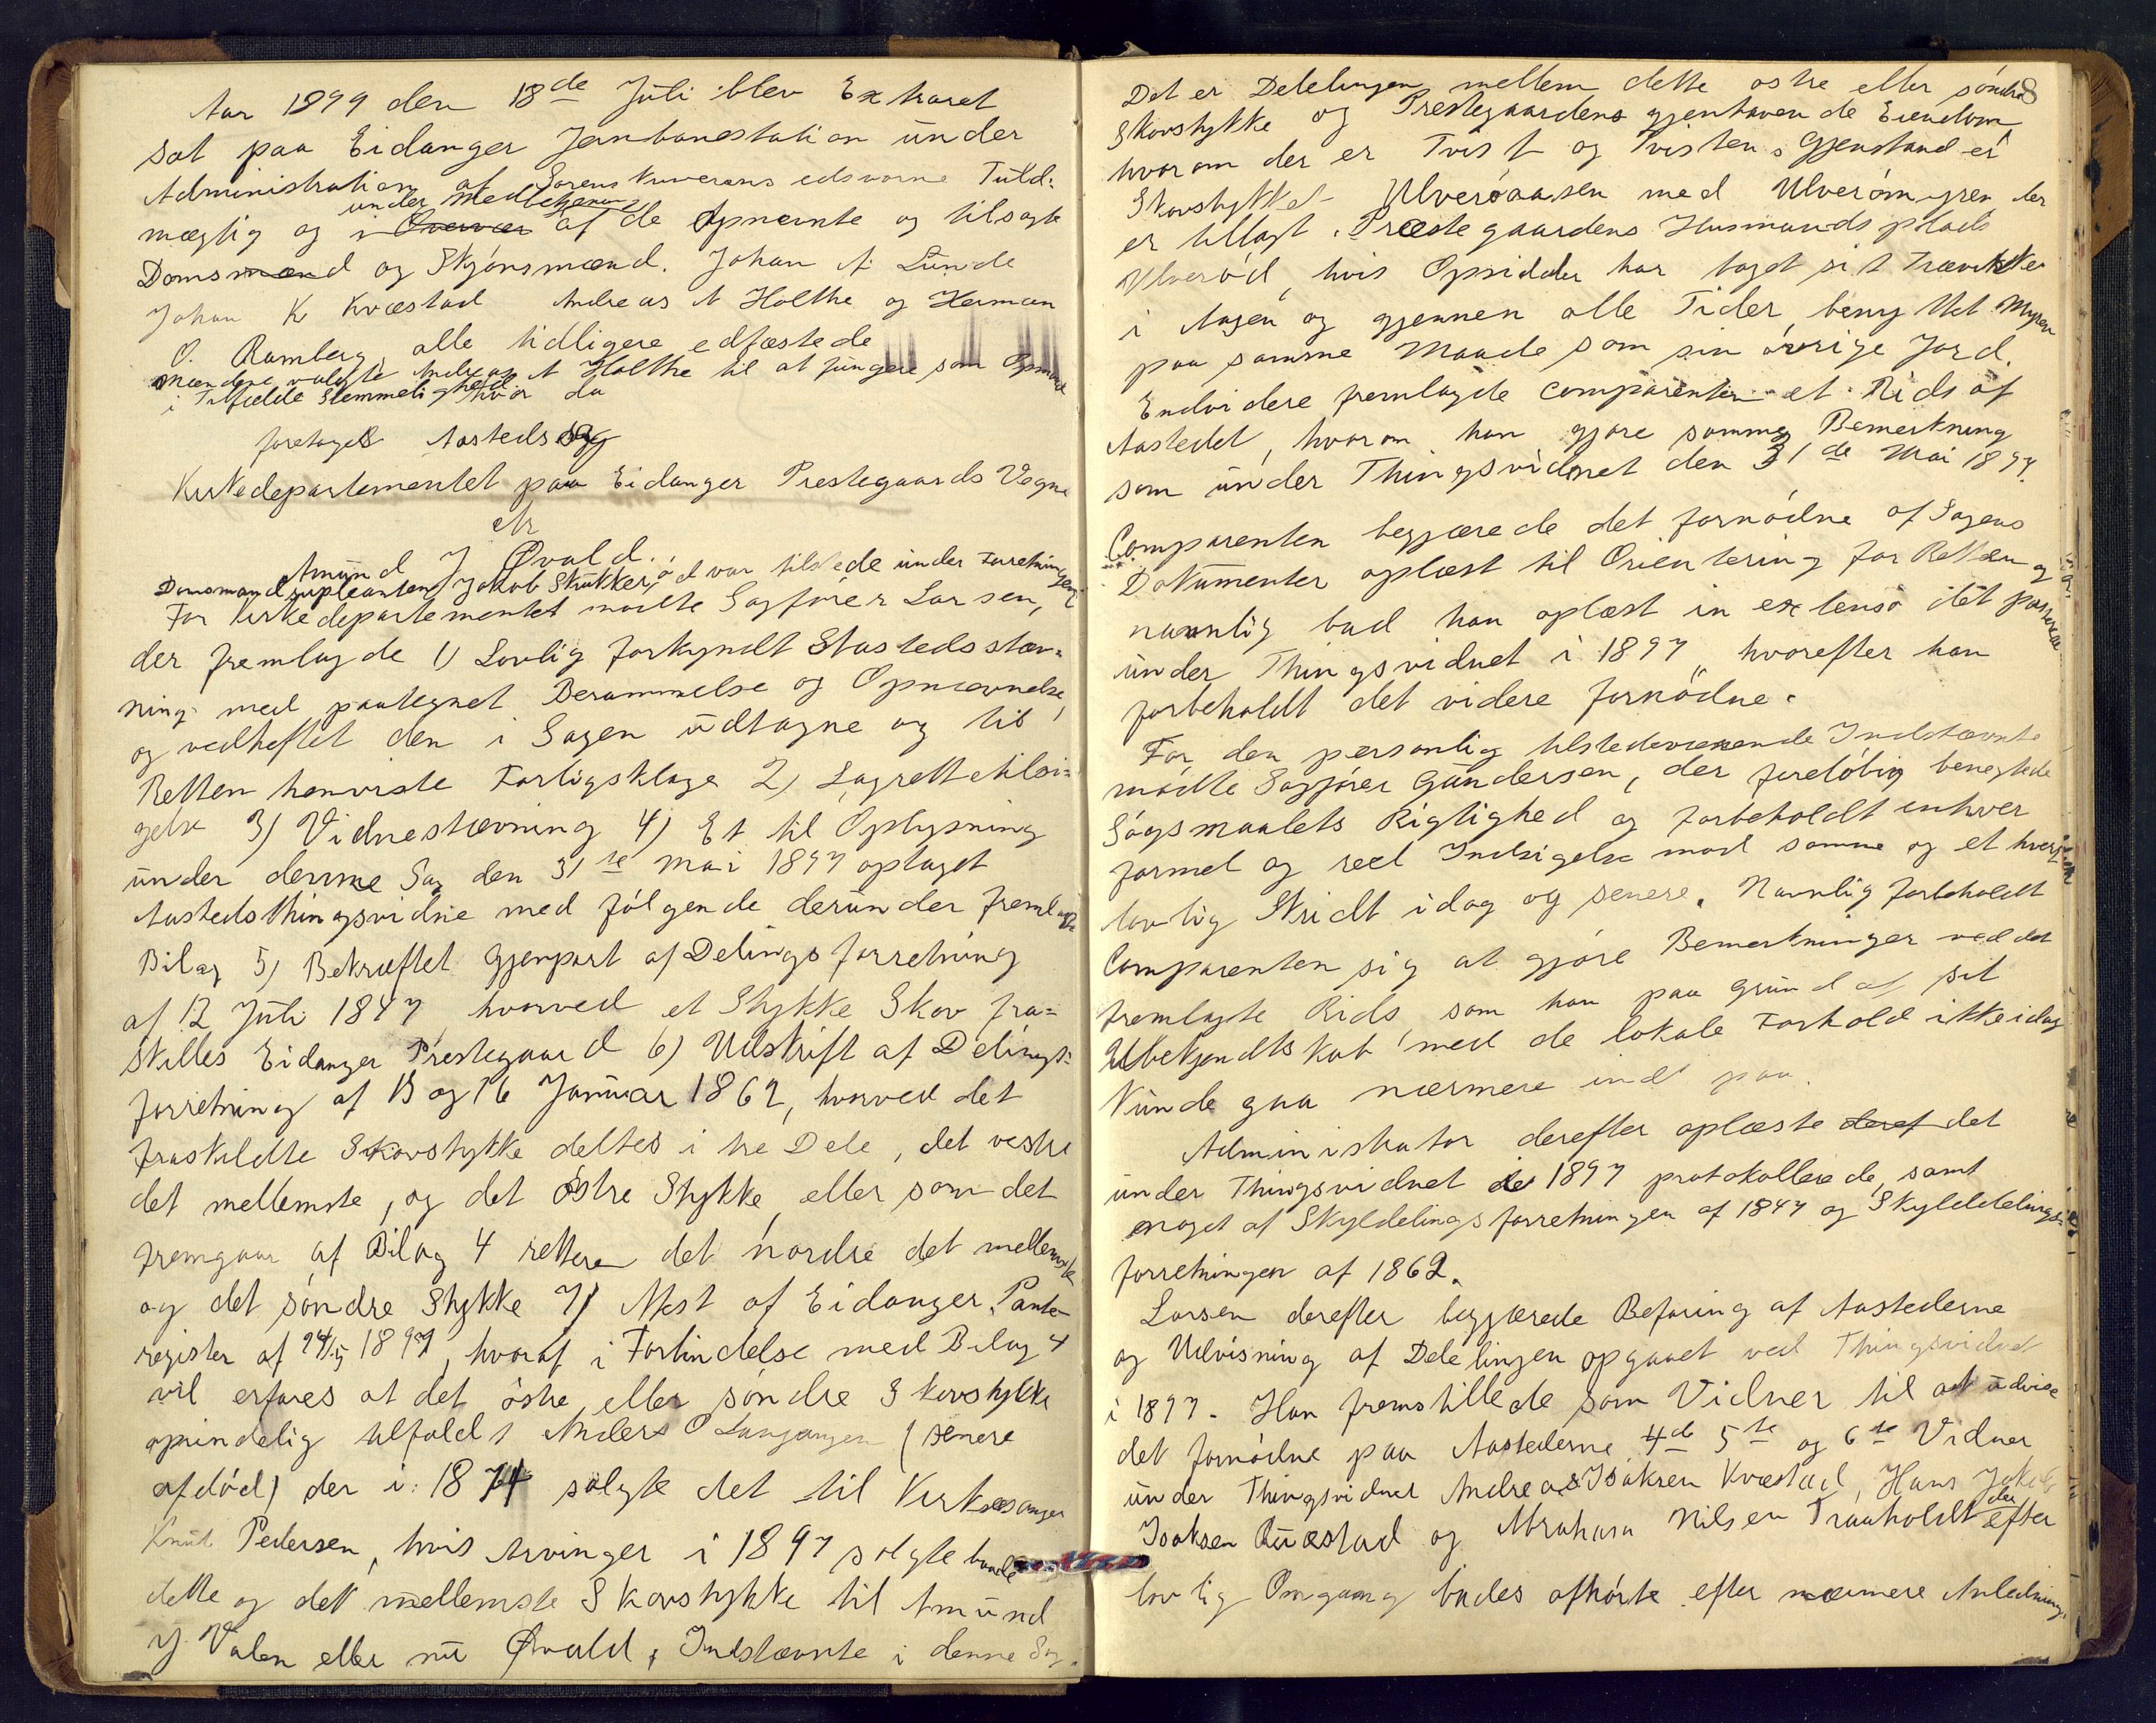 Aar 1899 den 18de Juli blev Extraret
sat paa Eidanger Jernbanestation under
Administration af Sorenskriverens edsvorne Fuld-
under Medbetjening
mægtig og i Overvær af de opnævnte og tilsagte
Domsmænd og Skjønsmænd. Johan A. Lunde
Johan K Kvæstad Andreas A Holthe og Herman
O. Ramberg, alle tidligere edfæstede
Mændene valgte Andreas A Holthe til at fungere som Opmand
i Tilfælde Stemmelighed hvor da
foretages Aastedssag
Kirkedepartementet paa Eidanger Prestegaards Vegne
Mr
Amund J Øvald.
Domsmandsupleanten Jakob Skukkerød var tilstede under Forretningen
For Kirkedepartementet mødte Sagfører Larsen,
der fremlagde 1) Lovlig forkyndt Aastedsstæv-
ning med paategnet Berammelse og Opnævnelse,
og vedheftet den i Sagen udtagne og til
Retten henviste Forligsklage 2) Lagrettetilsi-
gelse 3) Vidnestævning 4) Et til Oplysning
under denne Sag den 31te Mai 1897 optaget
Aastedsthingsvidne med følgende derunder fremlagte
Bilag 5) Bekræftet Gjenpart af Delingsforretning
af 12 Juli 1847 hvorved et Stykke Skov fra-
skilles Eidanger Prestegaard 6) Udskrift af Delings-
forretning af 15 og 16 Januar 1862, hvorved det
fraskildte Skovstykke deltes i tre Dele, det vestre
det mellemste, og det østre Stykke eller som det
fremgaar af Bilag 4 rettere det nordre det mellemste
og det søndre Stykke 7) Attest af Eidanger Pante-
register af 24/5 1897, hvoraf i Forbindelse med Bilag 4
vil erfares at det østre eller søndre Skovstykke
oprindelig tilfaldt Anders O Langangen (senere
afdød) der i 1874 solgte det til Kirkesanger
Knut Pedersen, hvis Arvinger i 1897 solgte baade
dette og det mellemste Skovstykke til Amund
J. Valen eller nu Øvald, Indstævnte i denne Sag.
8
Det er Delelingen mellem dette østre eller søndre
Skovstykke og Prestegaardens gjenhavende Eiendom
hvorom der er Tvist og Tvistens Gjenstand er
Skovstykket Ulverøaasen med Ulverømyren der
er tillagt Præstegaardens Husmandsplads
Ulverød, hvis Opsidder har taget sit Trævirke
i Aasen og gjennem alle Tider benyttet Myren
paa samme Maade som sin øvrige Jord.
Endvidere fremlagde Comparenten et Rids af
Aastedet, hvorom han gjøre samme Bemerkning
som under Thingsvidnet den 31de Mai 1897.
Comparenten begjærede det fornødne af Sagens
Dokumenter oplæst til Orientering for Retten og
navnlig bad han oplæst in extenso det passerede
under Thingsvidnet i 1897, hvorefter han
forbeholdt det videre fornødne.
For den personlig tilstedeværende Indstævnte
mødte Sagfører Gundersen, der foreløbig benegtede
Søgsmaalets Rigtighed og forbeholdt enhver
formel og reel Indsigelse mod samme og et hvert
lovlig Skridt idag og senere. Navnlig forbeholdt
Comparenten sig at gjøre Bemerkninger ved det
fremlagte Rids, som han paa Grund af sit
Ubekjendtskab med de lokale Forhold ikke idag
kunde gaa nærmere ind paa.
Administrator derefter oplæste deref det
under Thingsvidnet i 1897 protokollerede, samt
noget af Skyldelingsforretningen af 1847 og Skylddelings-
forretningen af 1862.
Larsen derefter begjærede Befaring af Aastederne
og Udvisning af Delelingen opgaaet ved Thingsvidnet
i 1897. Han fremstillede som Vidner til at udvise
det fornødne paa Aastederne 4de 5te og 6te Vidner
under Thingsvidnet Andreas Isaksen Kvæstad, Hans Jakob
Isaksen Kvæstad og Abraham Nilsen Traaholdt der efter
lovlig Omgang bades afhørte efter nærmere Anledning.